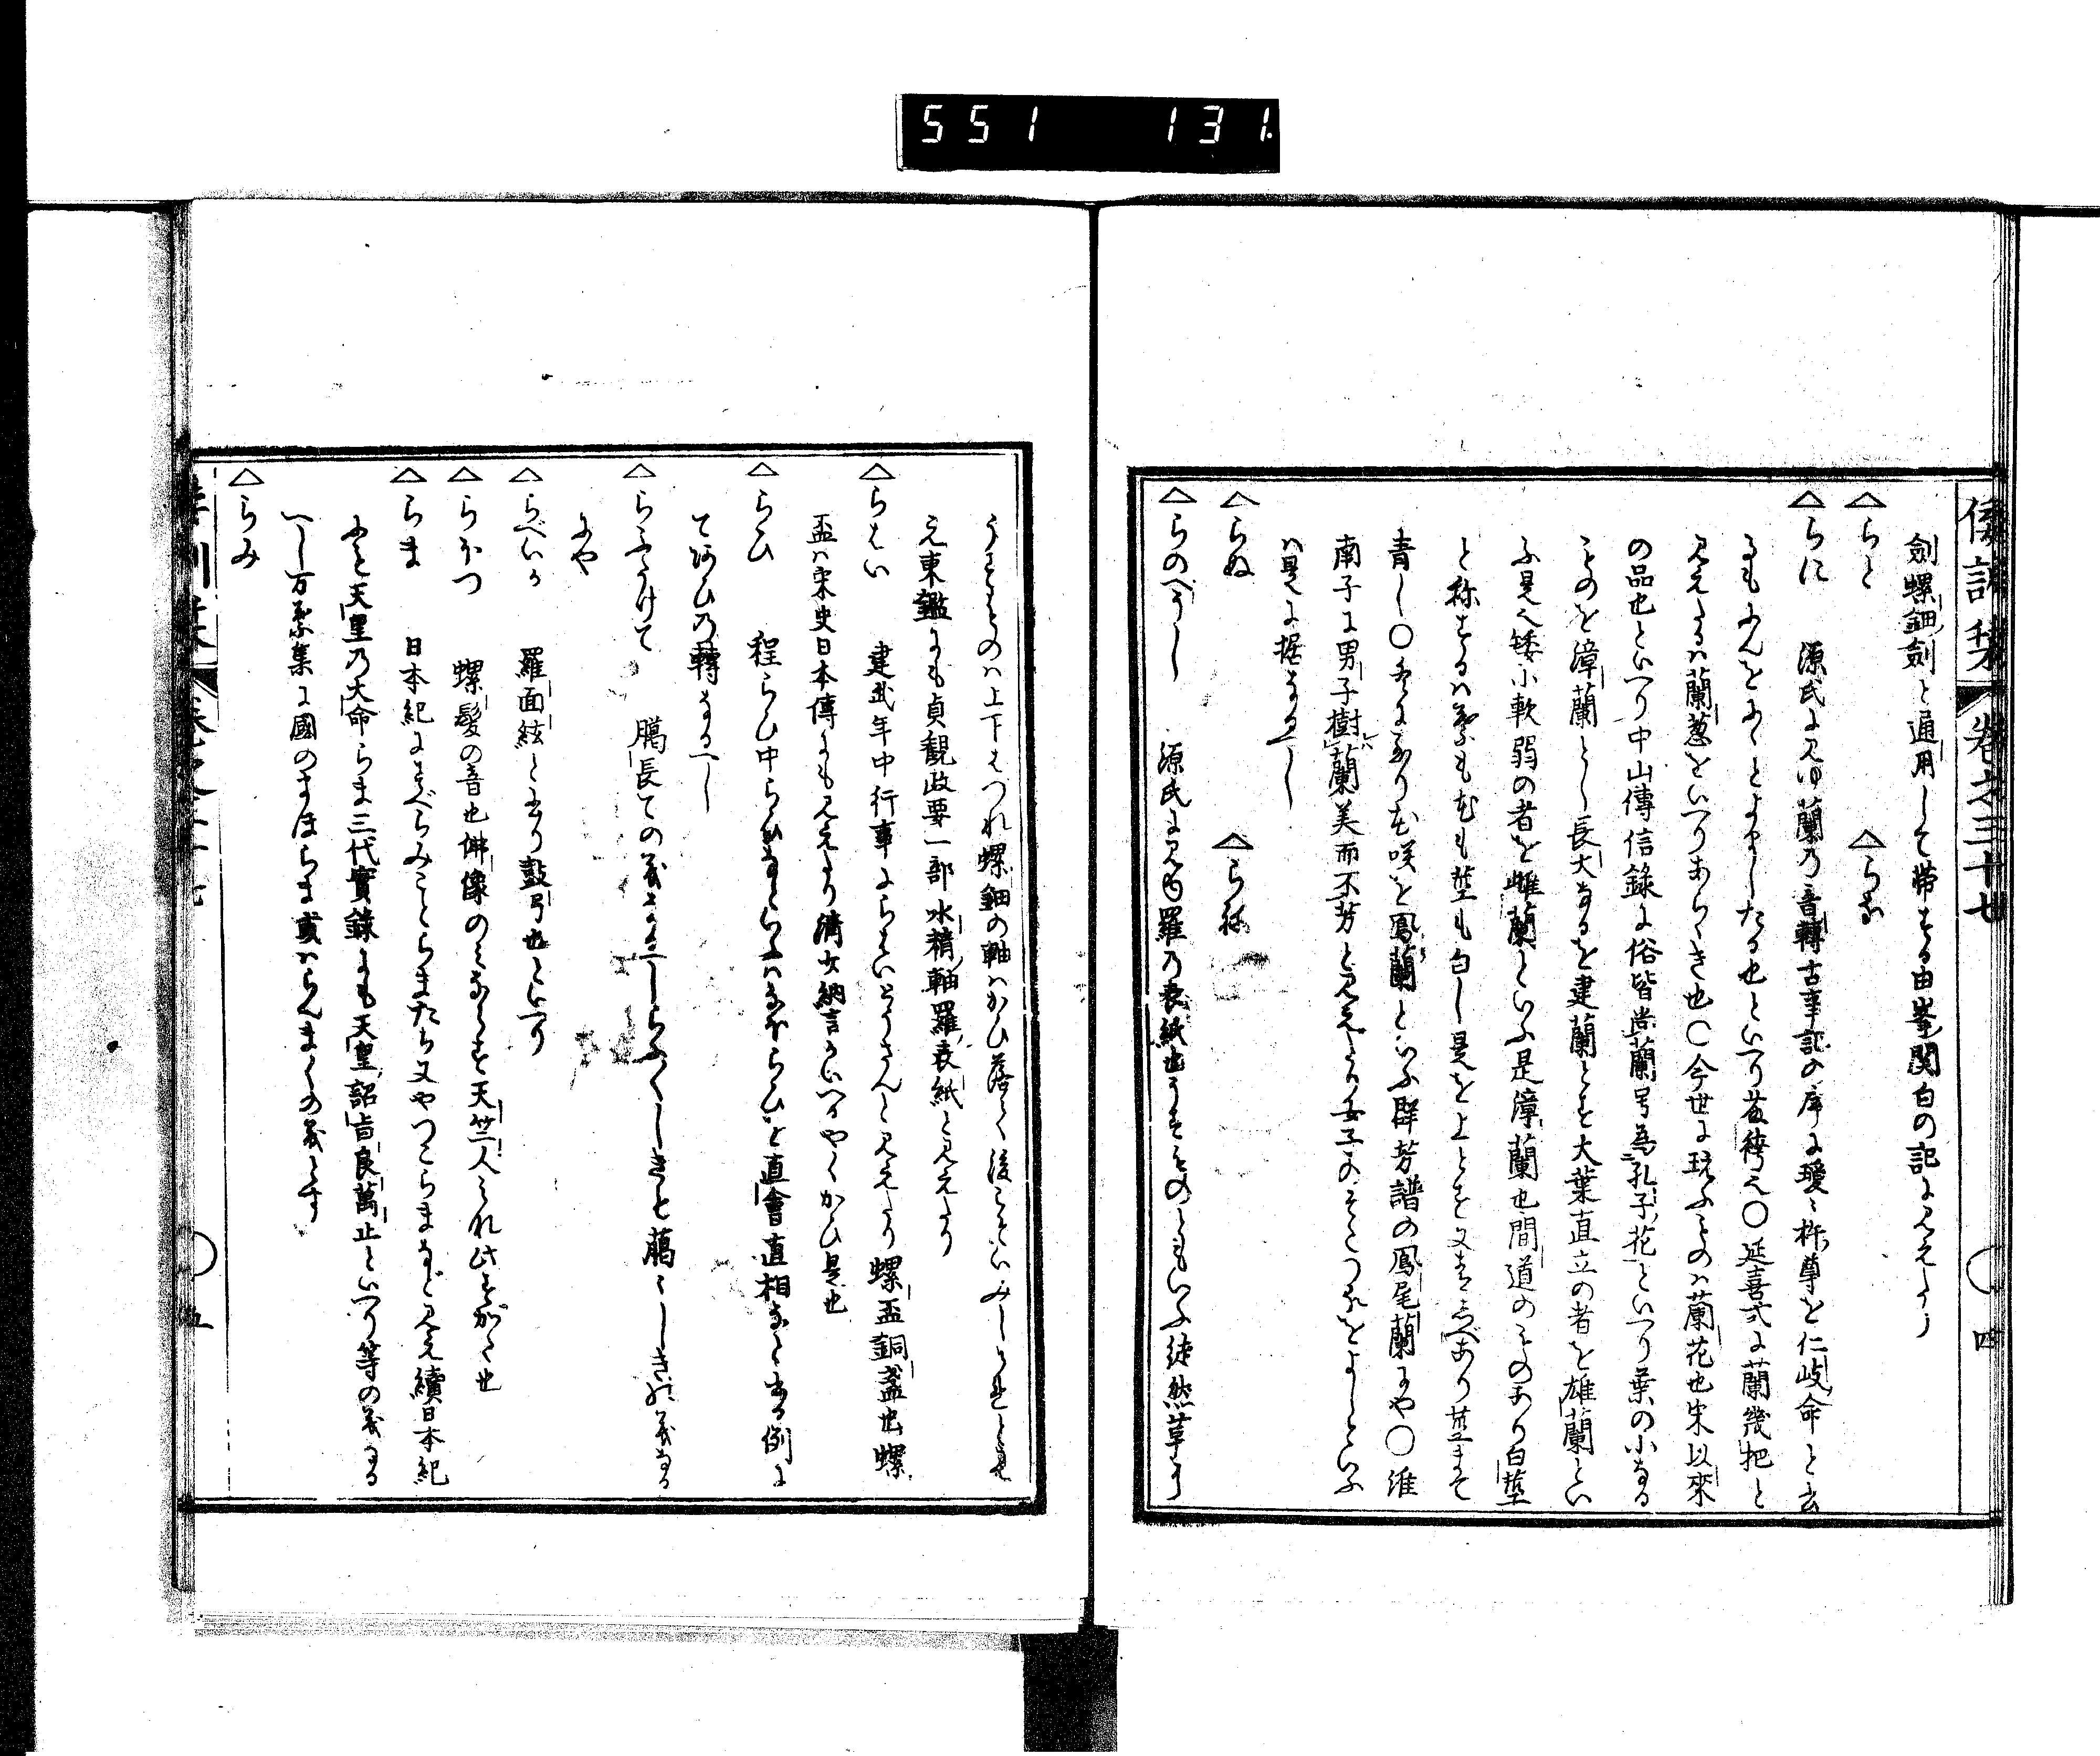 551 131
倭訓栞 卷之三十七 四
劍螺鈿劍と通用して帯する由峯関白の記に見えたり
△らと △らな
△らに 源氏に見ゆ蘭の音轉古事記の序に璦々杵尊を仁岐命と云
るもにんをにゝとよましたる也といへり 延喜式に蘭幾把と
見えたるハ蘭葱をいへりあらゝき也〇今世に玩ふものハ蘭花也宋以來
の品也といへり中山傳信錄に俗皆尚蘭号為孔子花といへり葉の小なる
ものを漳蘭とし長大なるを建蘭とす大葉直立の者を雄蘭とい
ふ是也矮小軟弱の者を雌蘭といふ是漳蘭也間道のものあり白莖
と称するハ葉も花も莖も白し是を上とす又すゞしべあり莖まて
青し〇冬になり花咲を鳳蘭といふ群芳譜の鳳尾蘭にや〇淮
南子に男子樹蘭美而不芳と見えたり女子のそこつれをよしといふ
ハ是に据なるへし
△らぬ △らね
△らのべうし 源氏に見ゆ羅の表紙也うすものともいふ徒然草に
うすものハ上下はつれ螺鈿の軸ハかひ落て後こそいみしけれと見
え東鑑にも貞觀政要一部水精軸羅表紙と見えたり
△らはい 建武年中行事にらはいとうさんと見えたり螺盃銅盞也螺
盃ハ宋史日本傳にも見えたり清少納言にいへるやくかひ是也
△らひ 程らひ中らひなとらふハならひを直會直相なと書る例に
てあひの轉なるへし
△らふたけて 臈長ての義なるへしらふ〱しきも臈〱しきの義なる
にや
△らべいか 羅面絃と云り鼓弓也といへり
△らほつ 螺髪の音也佛像のミならす天竺人ミれ此すがた也
△らま 日本紀にすべらみことらまたち又やつこらまなど見え續日本紀
に天皇乃大命らま三代實錄にも天皇詔旨良萬止といへり等の義なる
へし万葉集に國のまほらま或ハらんま〱の義とす
△らみ
卷之三十七 五